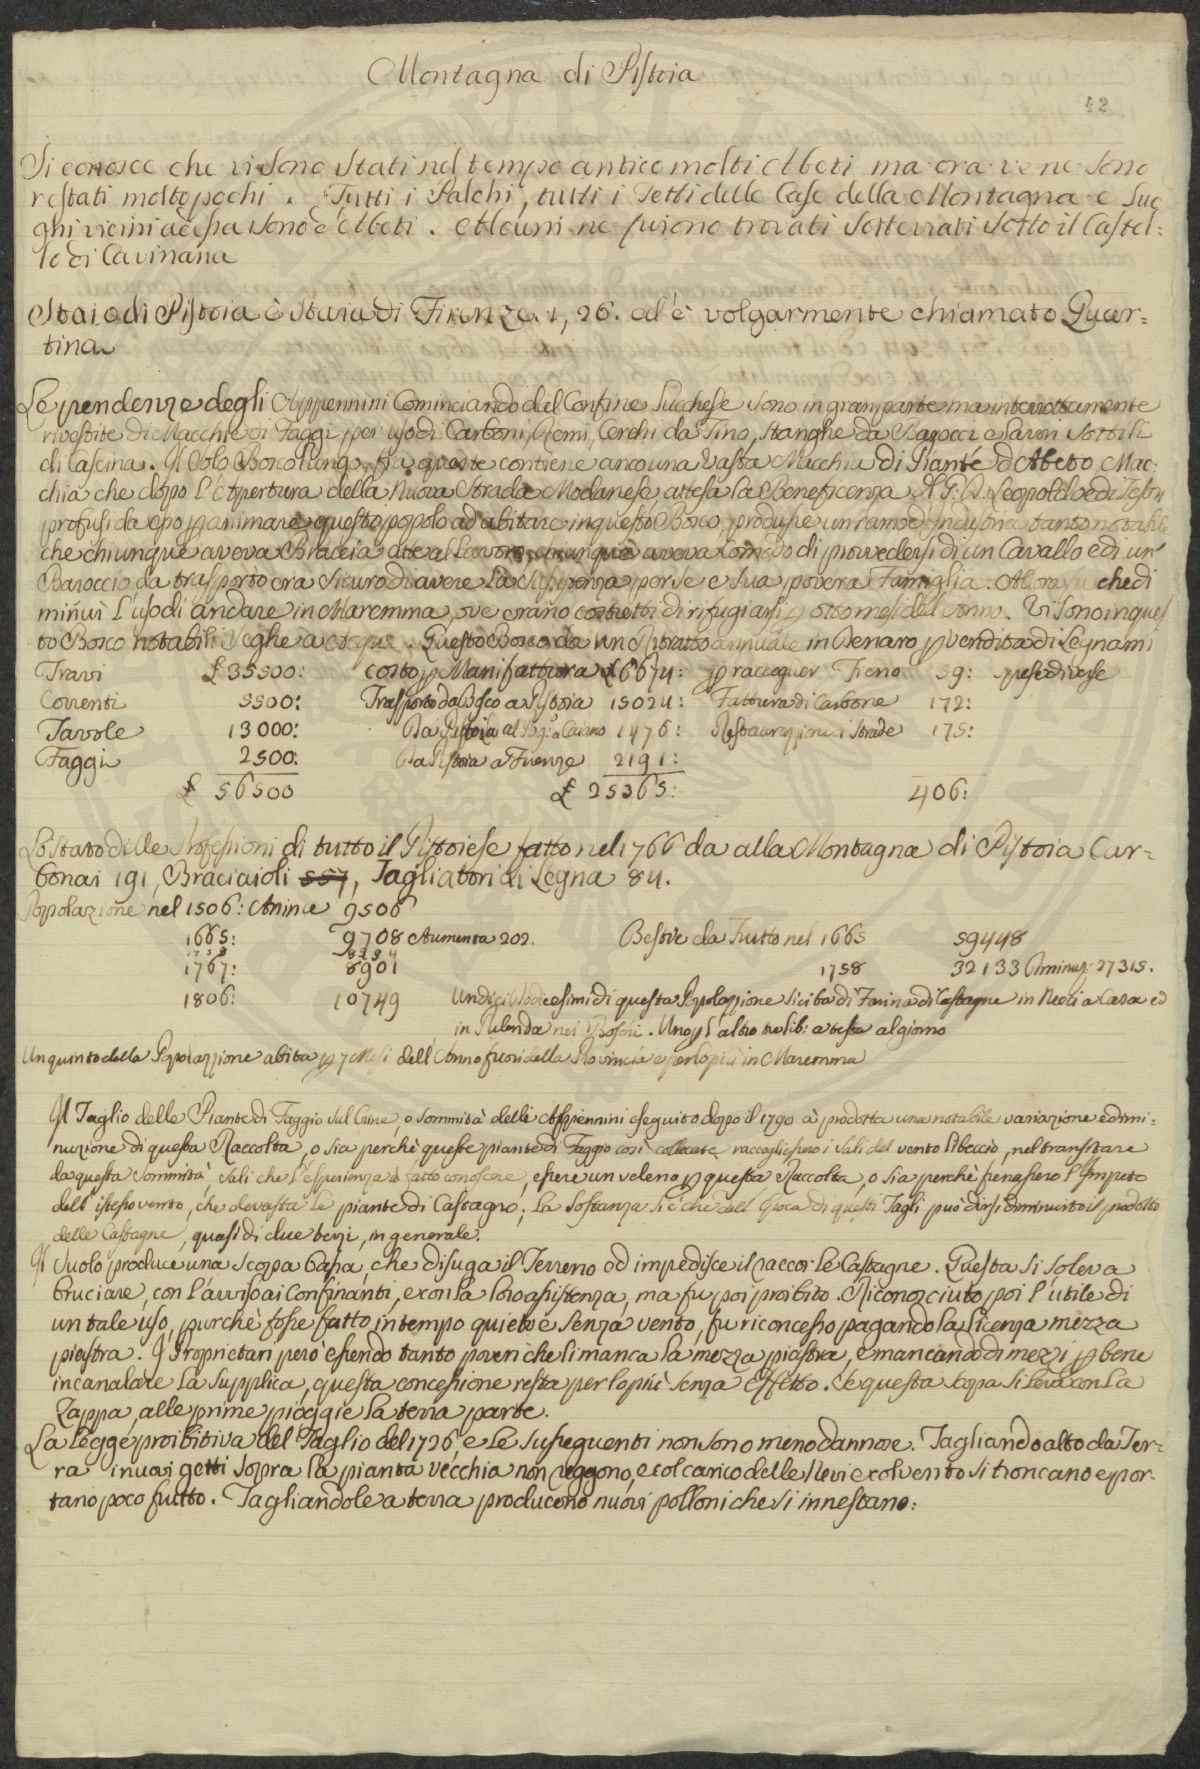 Montagna di Pistoia
42
Si conosce che vi sono stati nel tempo antico molti Abeti ma ora ve ne sono
restati molto pochi. Tutti i Palchi, tutti i Tetti delle Case della Montagna e Luo
ghi vicini ad essa sono d'Abeti. Alcuni ne furono trovati sotterrati sotto il Castel:
lo di Cavinana
Staio di Pistoia è staia di Firenze. 1, 26. ed è volgarmente chiamato Quar=
tina
Le pendenze degli Appennini Cominciando dal Confine Lucchese sono in gran parte ma interrottamente
rivestite di Macchie di Faggi per uso di Carboni, Remi, Cerchi da Tino, Stanghe da Barocci e lavori sottili
di Cascina. Il solo Bosco Lungo fra queste contiene anco una vasta Macchia di Piante d'Abeto, Mac:
chia che dopo l'Apertura della Nuova Strada Modanese attesa la Beneficenza di G. D. Leopoldo ed i Tesori
profusi da epo p animare questo popolo ad abitare in questo Bosco, produsse un ramo d'Industria tanto notabile
che chiunque aveva Braccia atte al Lavoro, chiunque aveva comodo di provvedersi di un Cavallo e di un
Baroccio da trasporto era sicuro di avere la sussistenza per se e sua povera Famiglia. Allora fu che di
minuì l'uso di andare in Maremma, ove erano costretti di rifugiarsi p otto mesi dell'Anno. Vi sono in ques
to Bosco notabili seghe a acqua. Questo Bosco da un ritratto annuale in Denaro p vendita di Legnami
Travi £ 35500: costo p Manifattura £ 6674: p raccoglier Fieno 59: spese diverse
Correnti 5500: Trasporto da Bosco a Pistoia 15024: Fattura di Carbone 172:
Tavole 13000: Da Pistoia al Pog.º a Caiano 1476: Restaurazione di strade 175:
Faggi 2500: Da Pistoia a Firenze 2191:
£ 56500 £ 25365: 406:
Lo Stato delle Professioni di tutto il Pistoiese fatto nel 1766 da alla Montagna di Pistoia Car=
bonai 191, Braciaioli 557, Tagliatori di Legna 84.
Popolazione nel 1506: Anime 9506
1665: 9708 Aumenta 202. Bestie da Frutto nel 1665 59448
1758 8754
1767: 8901 1758 32133 Diminuz: 27315.
1806: 10749 Undici dodicesimi di questa Popolazione si ciba di Farina di Castagne in Necci a Casa ed
in Pulenda nei Boschi. Uno p l'altro tre lib: a testa al giorno
Un quinto della Popolazione abita p 7 Mesi dell'Anno fuori della Provincia e per lo più in Maremma
Il Taglio delle Piante di Faggio sul Crine, o sommità delli Appennini eseguito dopo il 1790 à prodotta una notabile variazione e dimi:
nuzione di questa Raccolta, o sia perchè queste piante di Faggio così collocate raccogliessero i sali del vento libeccio, nel transitare
da questa sommità, sali che l'esperienza à fatto conoscere, essere un veleno p questa Raccolta, o sia perchè frenassero l'Impeto
dell'istesso vento, che devasta le piante di Castagno; La sostanza si è che dall'Epoca di questi Tagli può dirsi diminuito il prodotto
delle Castagne, quasi di due terzi, in generale.
Il Suolo produce una scopa bassa, che disuga il Terreno ed impedisce il raccor le Castagne. Questa si soleva
bruciare, con l'avviso ai Confinanti, e con la loro assistenza, ma fu poi proibito. Riconosciuto poi l'utile di
un tale uso, purchè fosse fatto in tempo quieto e senza vento, fu riconcesso pagando la licenza mezza
piastra. I Proprietari però essendo tanto poveri che li manca la mezza piastra, e mancando di mezzi p bene
incanalare la supplica, questa concessione resta per lo più senza Effetto. Se questa scopa si leva con la
Zappa, alle prime pioggie la terra parte.
La Legge proibitiva del Taglio del 1726, e le susseguenti non sono meno dannose. Tagliando alto da Ter=
ra i nuovi getti sopra la pianta vecchia non reggono, e col carico delle Nevi e col vento si troncano e por:
tano poco frutto. Tagliandole a terra producono nuovi polloni che si innestano: